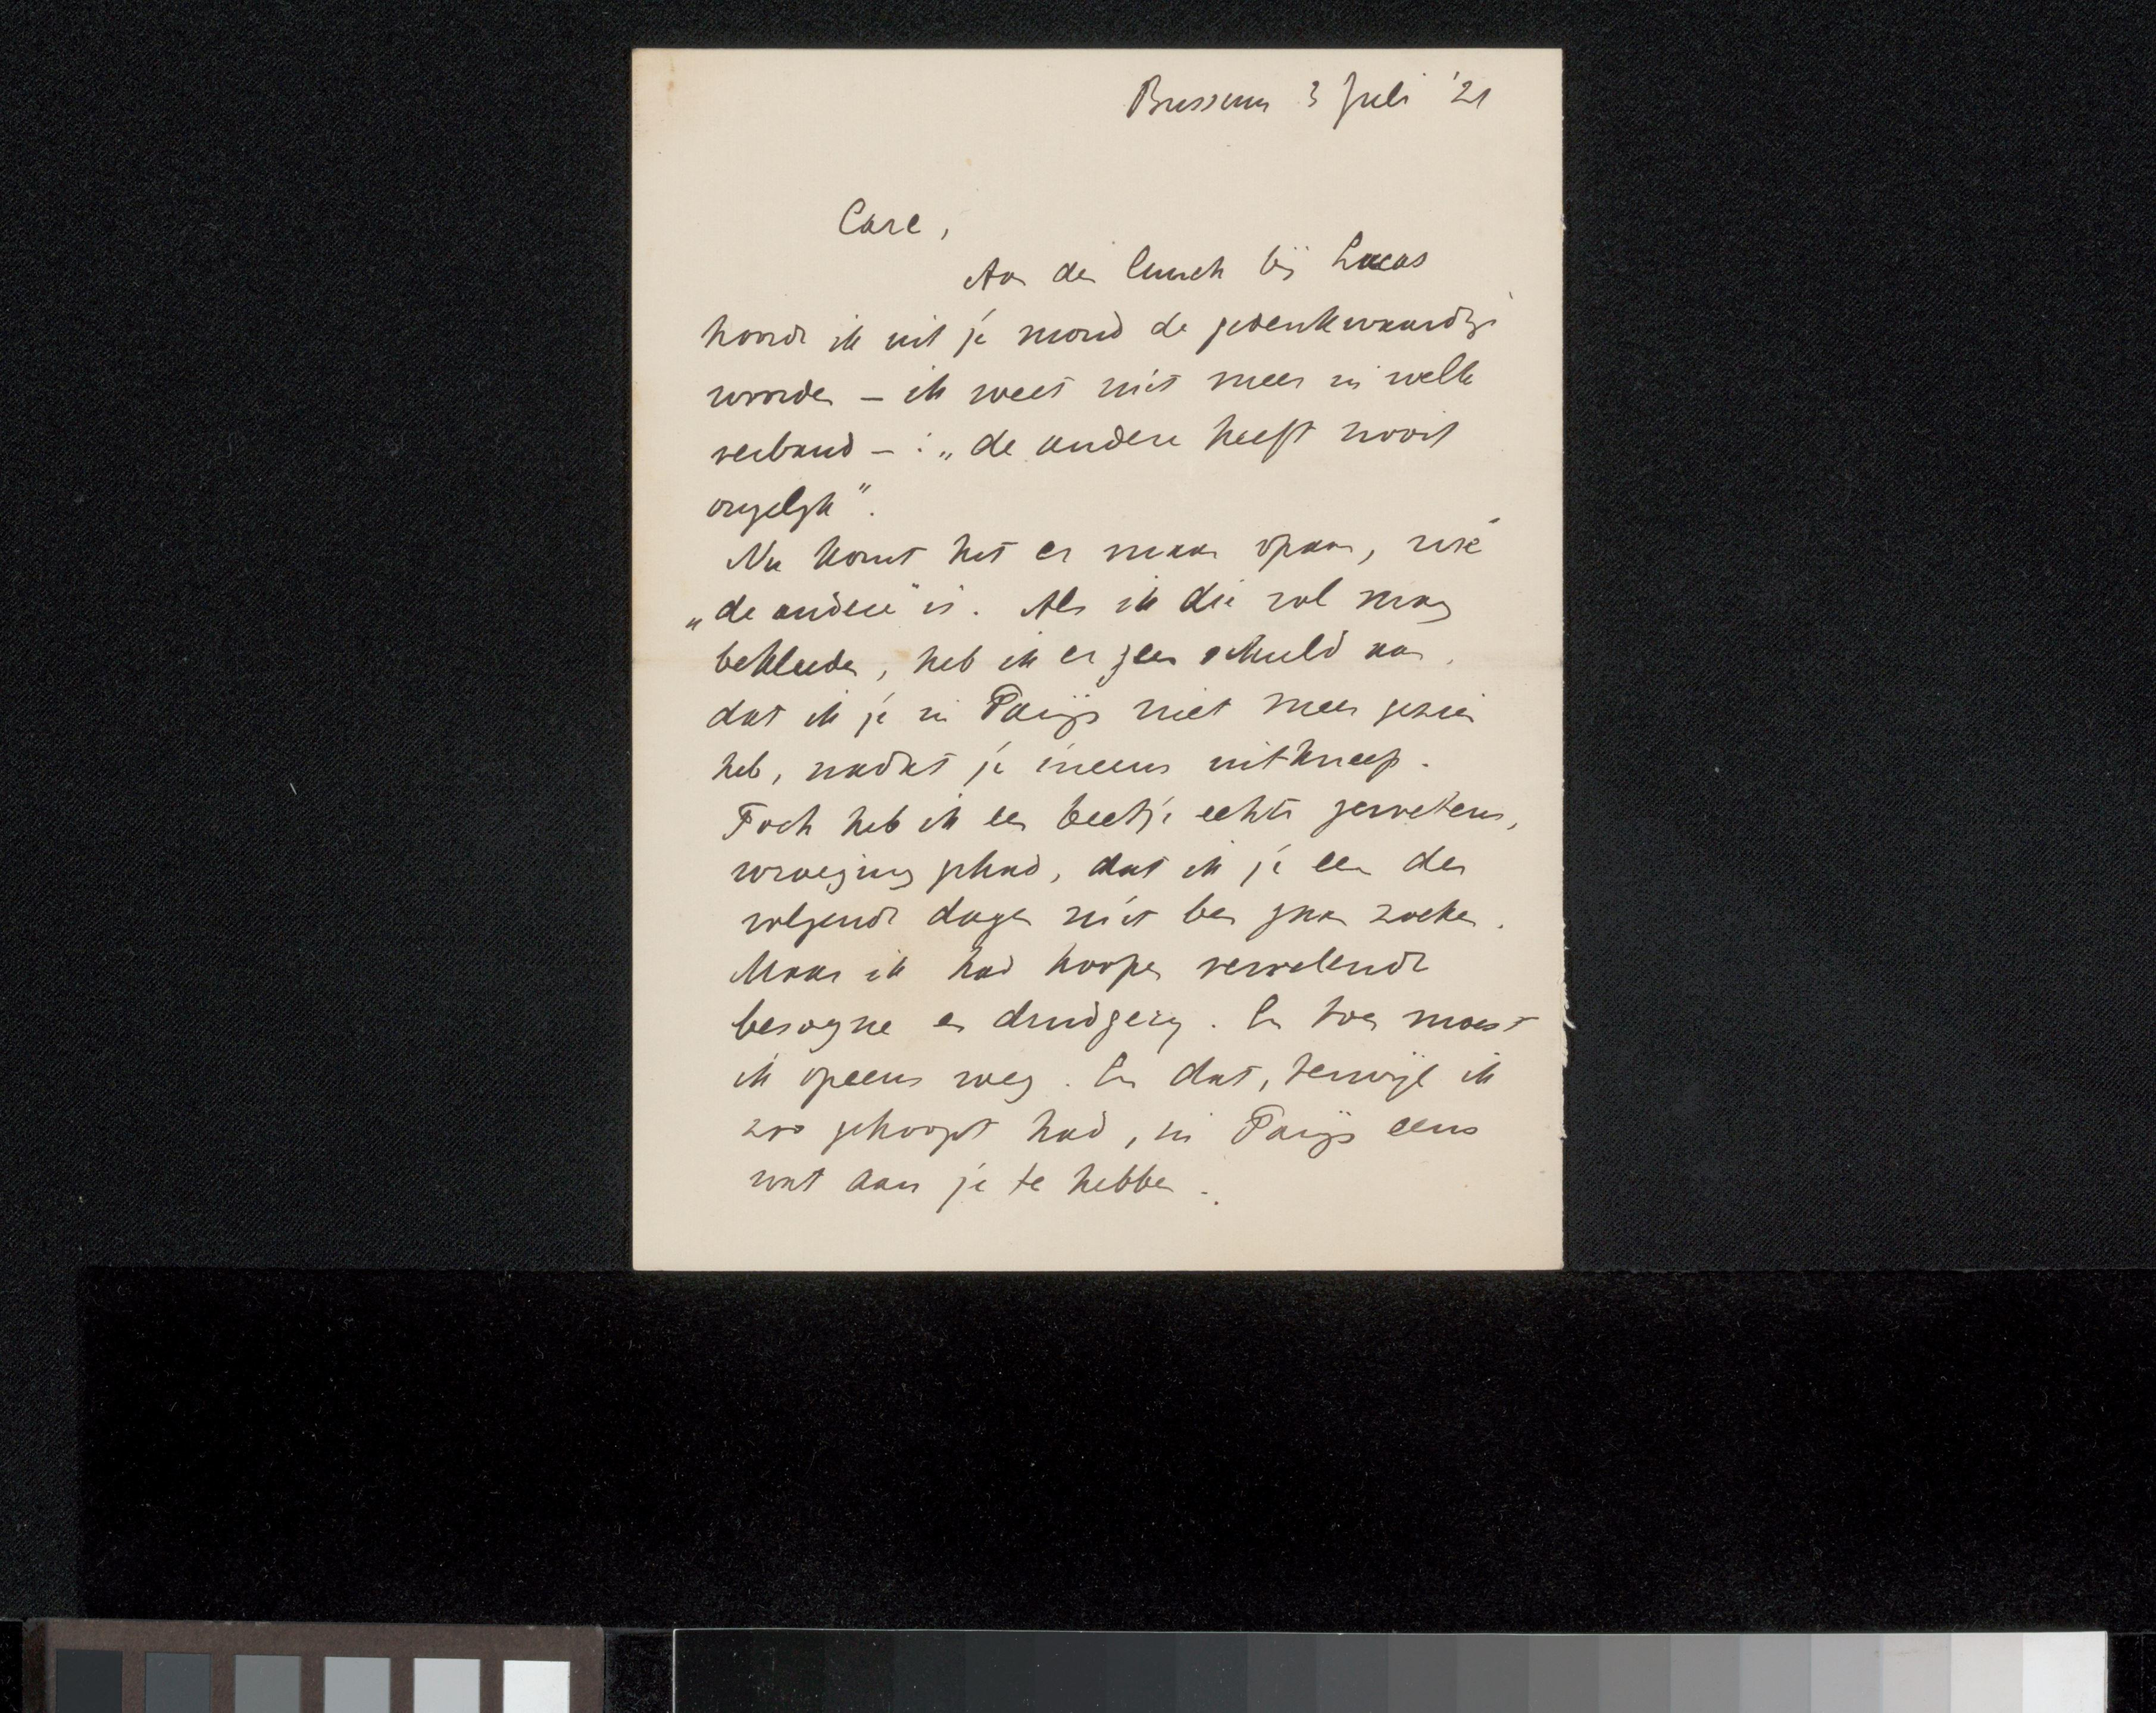 Bussum 3 Juli '21
Care,
Aan den lunch bij Lucas
hoorde ik uit je mond de gedenkwaardige
woorden – ik weet niet meer in welk
verband – : „de andere heeft nooit
ongelijk".
Nu komt het er maar opaan, wie
„de andere" is. Als ik die rol mag
bekleeden, heb ik er geen schuld aan,
dat ik je in Parijs niet meer gezien
heb, nadat je ineens uitkneep.
Toch heb ik een beetje echte gewetens,
wroeging gehad, dat ik je een der
volgende dagen niet ben gaan zoeken.
Maar ik had hoopen vervelende
besogne en drudgery. En toen moest
ik opeens weg. En dat, terwijl ik
zoo gehoopt had, in Parijs eens
wat aan je te hebben.